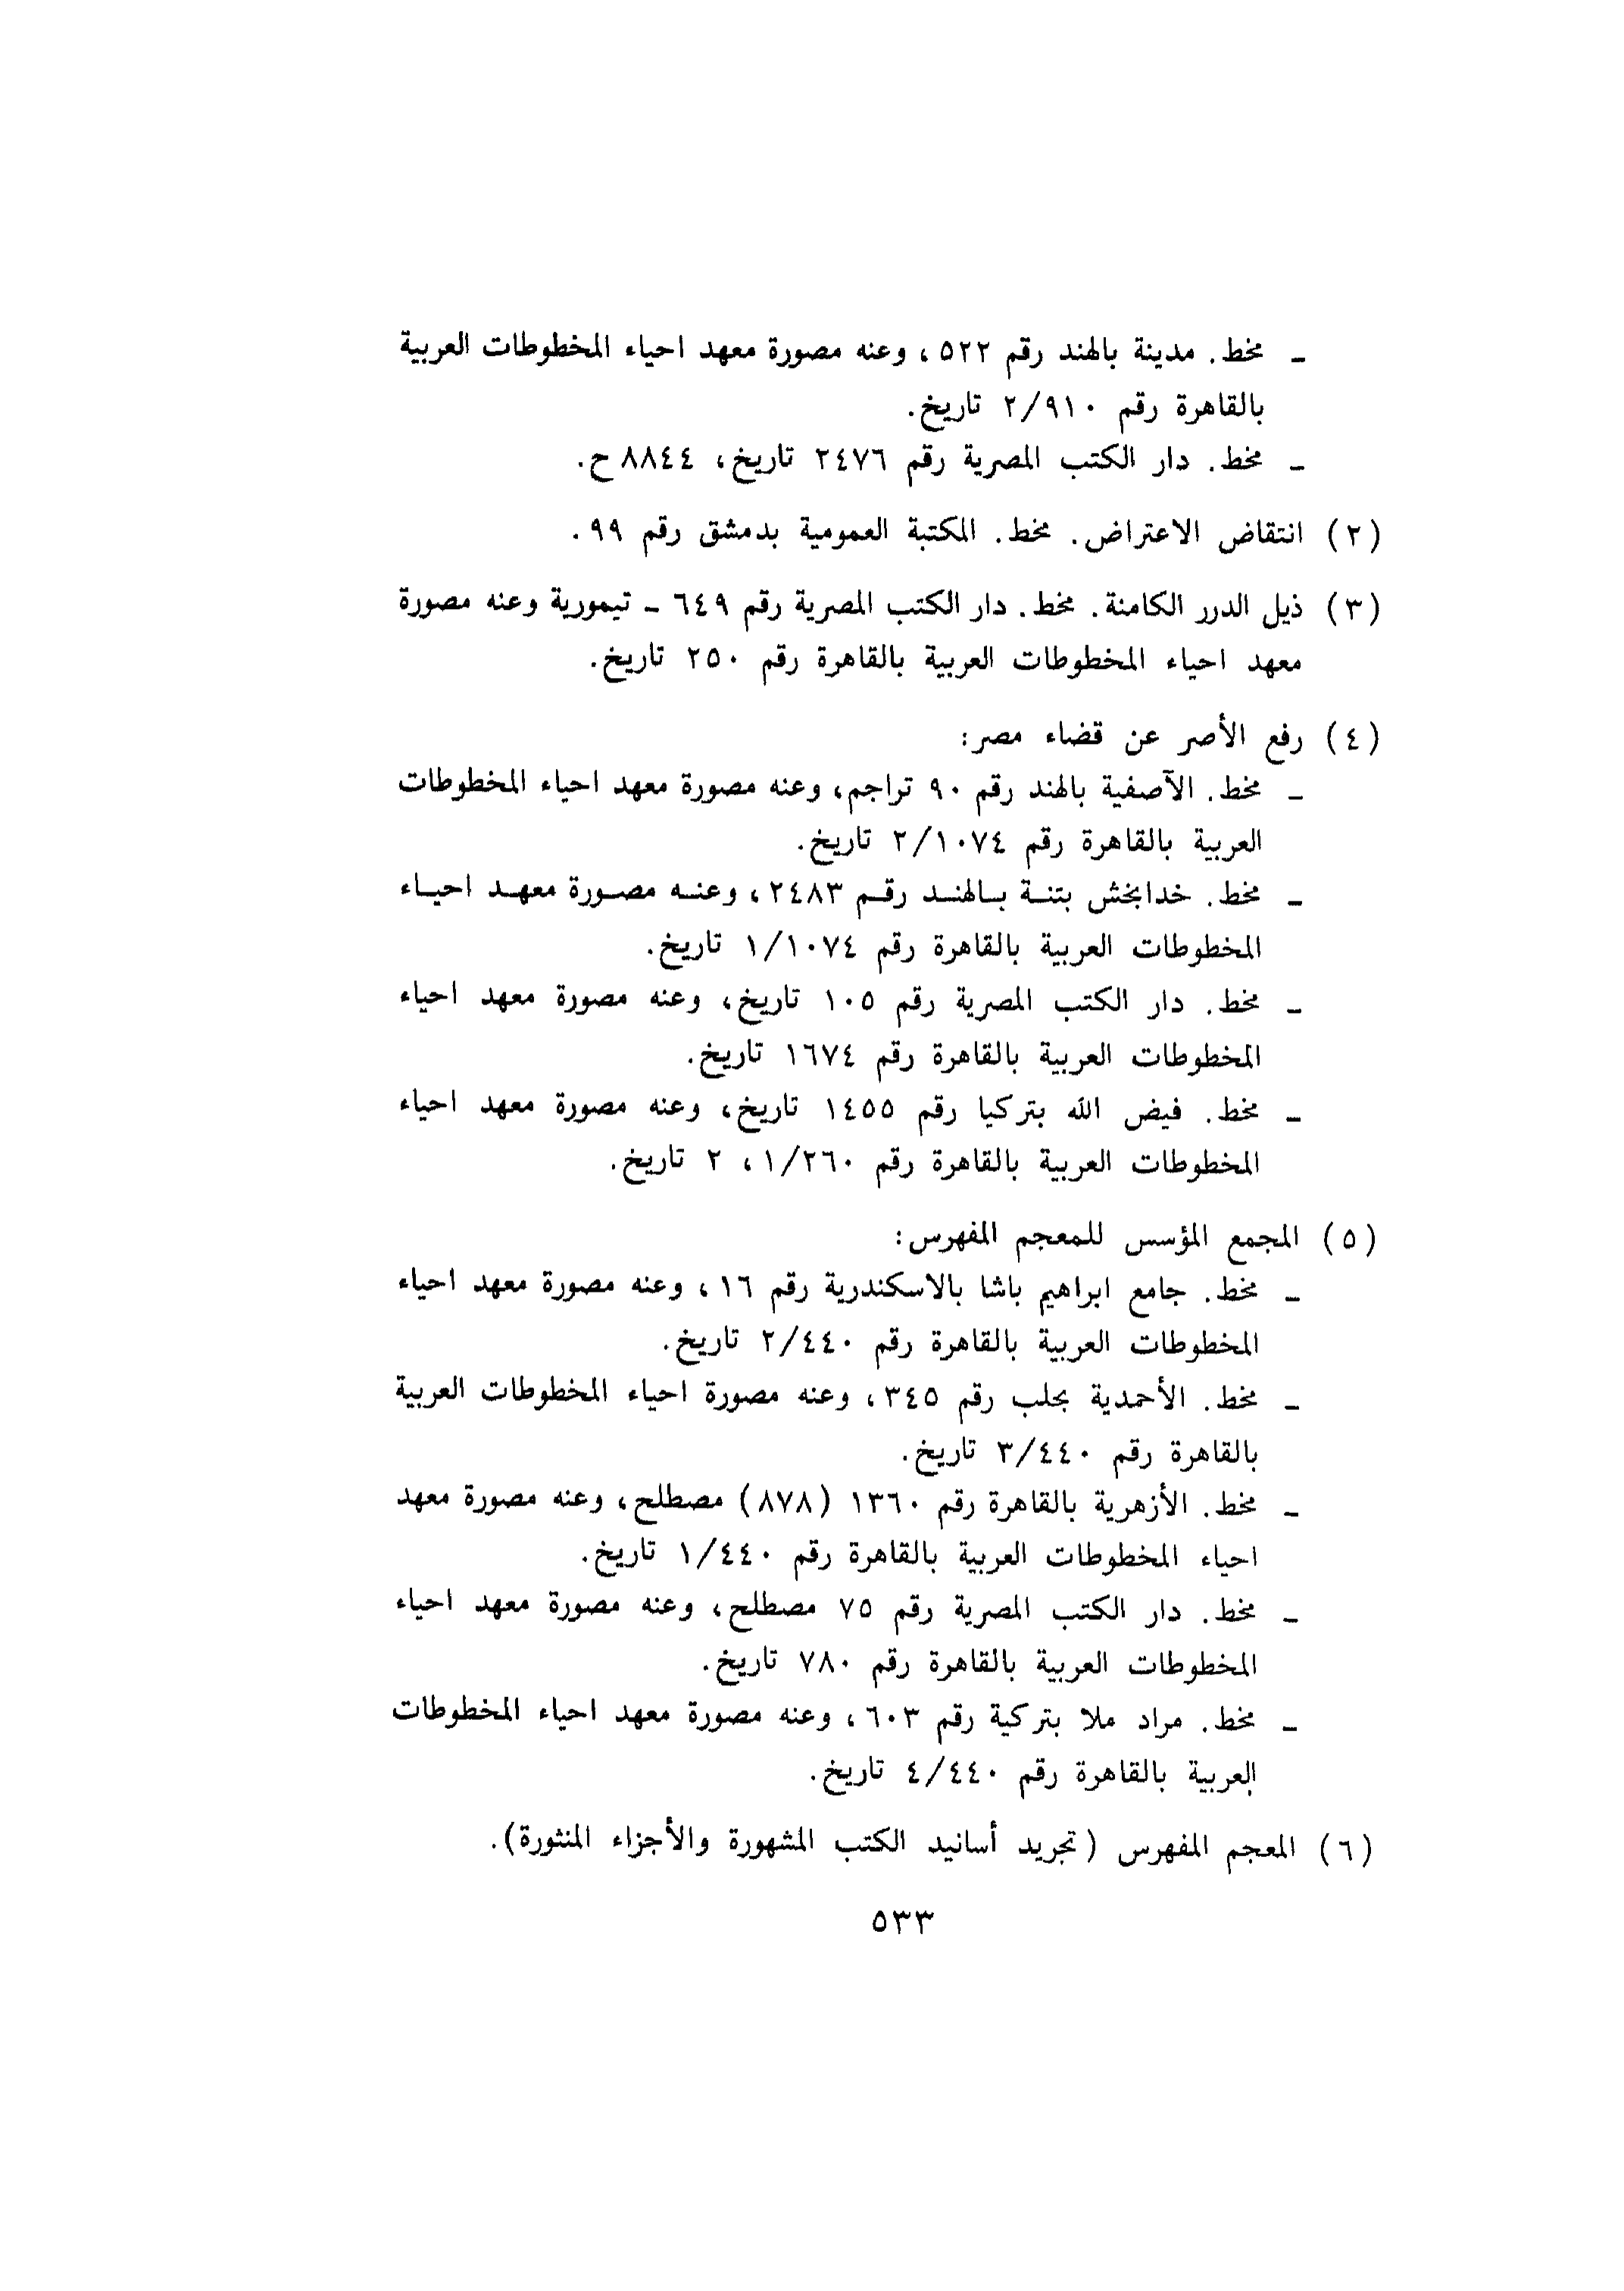 ـ مخط. مدينة بالهند رقم ٥٢٢ ، وعنه مصورة معهد احياء المخطوطات العربية
بالقاهرة رقم ٢/٩١٠ تاريخ.
ـ مخط. دار الكتب المصرية رقم ٢٤٧٦ تاريخ، ٨٨٤٤ ح.
(٢) انتقاض الاعتراض. مخط. المكتبة العمومية بدمشق رقم ٩٩ .
(٣) ذيل الدرر الكامنة. مخط. دار الكتب المصرية رقم ٦٤٩ ـ تيمورية وعنه مصورة
معهد احياء المخطوطات العربية بالقاهرة رقم ٢٥٠ تاريخ.
(٤) رفع الأصر عن قضاء مصر:
ـ مخط. الآصفية بالهند رقم ٩٠ تراجم، وعنه مصورة معهد احياء المخطوطات
العربية بالقاهرة رقم ٢/١٠٧٤ تاريخ.
ـ مخط. خدابخش بتنـة بـالهنـد رقـم ٢٤٨٣ ، وعنـه مصـورة معهـد احيـاء
المخطوطات العربية بالقاهرة رقم ١/١٠٧٤ تاريخ.
ـ مخط. دار الكتب المصرية رقم ١٠٥ تاريخ، وعنه مصورة معهد احياء
المخطوطات العربية بالقاهرة رقم ١٦٧٤ تاريخ.
ـ مخط. فيض الله بتركيا رقم ١٤٥٥ تاريخ، وعنه مصورة معهد احياء
المخطوطات العربية بالقاهرة رقم ١/٢٦٠ ، ٢ تاريخ.
(٥) المجمع المؤسس للمعجم المفهرس:
ـ مخط. جامع ابراهيم باشا بالاسكندرية رقم ١٦ ، وعنه مصورة معهد احياء
المخطوطات العربية بالقاهرة رقم ٢/٤٤٠ تاريخ.
ـ مخط. الأحمدية بحلب رقم ٣٤٥ ، وعنه مصورة احياء المخطوطات العربية
بالقاهرة رقم ٣/٤٤٠ تاريخ.
ـ مخط. الأزهرية بالقاهرة رقم ١٣٦٠ (٨٧٨) مصطلح، وعنه مصورة معهد
احياء المخطوطات العربية بالقاهرة رقم ١/٤٤٠ تاريخ.
ـ مخط. دار الكتب المصرية رقم ٧٥ مصطلح، وعنه مصورة معهد احياء
المخطوطات العربية بالقاهرة رقم ٧٨٠ تاريخ.
ـ مخط. مراد ملا بتركية رقم ٦٠٣ ، وعنه مصورة معهد احياء المخطوطات
العربية بالقاهرة رقم ٤/٤٤٠ تاريخ.
(٦) المعجم المفهرس (تجريد أسانيد الكتب المشهورة والأجزاء المنثورة).
٥٣٣